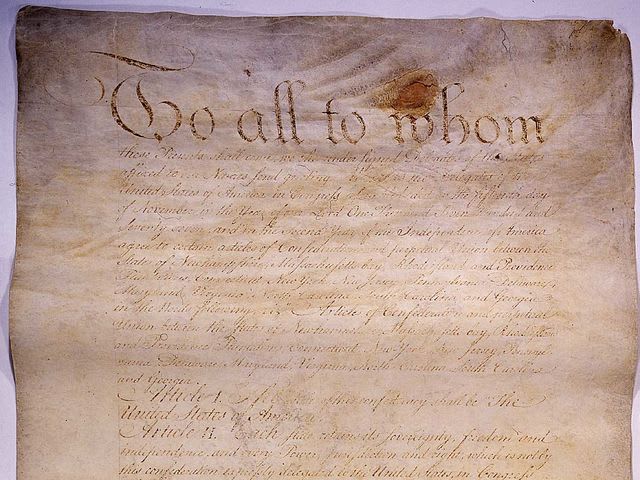 To all to whom
these Presents shall come, we the under signed Delegates of the States
affixed to our Names send greeting. Whereas the Delegates of the
United States of America in Congress assembled did on the fifteenth day
of November in the Year of our Lord One Thousand Seven Hundred and
Seventy seven, and in the Second Year of the Independence of America
agree to certain articles of Confederation and perpetual Union between the
States of Newhampshire, Massachusetts-bay, Rhodeisland and Providence
Plantations, Connecticut, New York, New Jersey, Pennsylvania, Delaware,
Maryland, Virginia, North-Carolina, South-Carolina and Georgia
in the Words following, viz. Articles of Confederation and perpetual
Union between the states of Newhampshire, Massachusetts-bay, Rhodeisland
and Providence Plantations, Connecticut, New-York, New-Jersey, Pennsyl-
vania, Delaware, Maryland, Virginia, North-Carolina, South-Carolina
and Georgia.
Article I. The Stile of this confederacy shall be "The
United States of America."
Article II. Each state retains its sovereignty, freedom and
independence, and every Power, Jurisdiction and right, which is not by
this confederation expressly delegated to the United States, in Congress